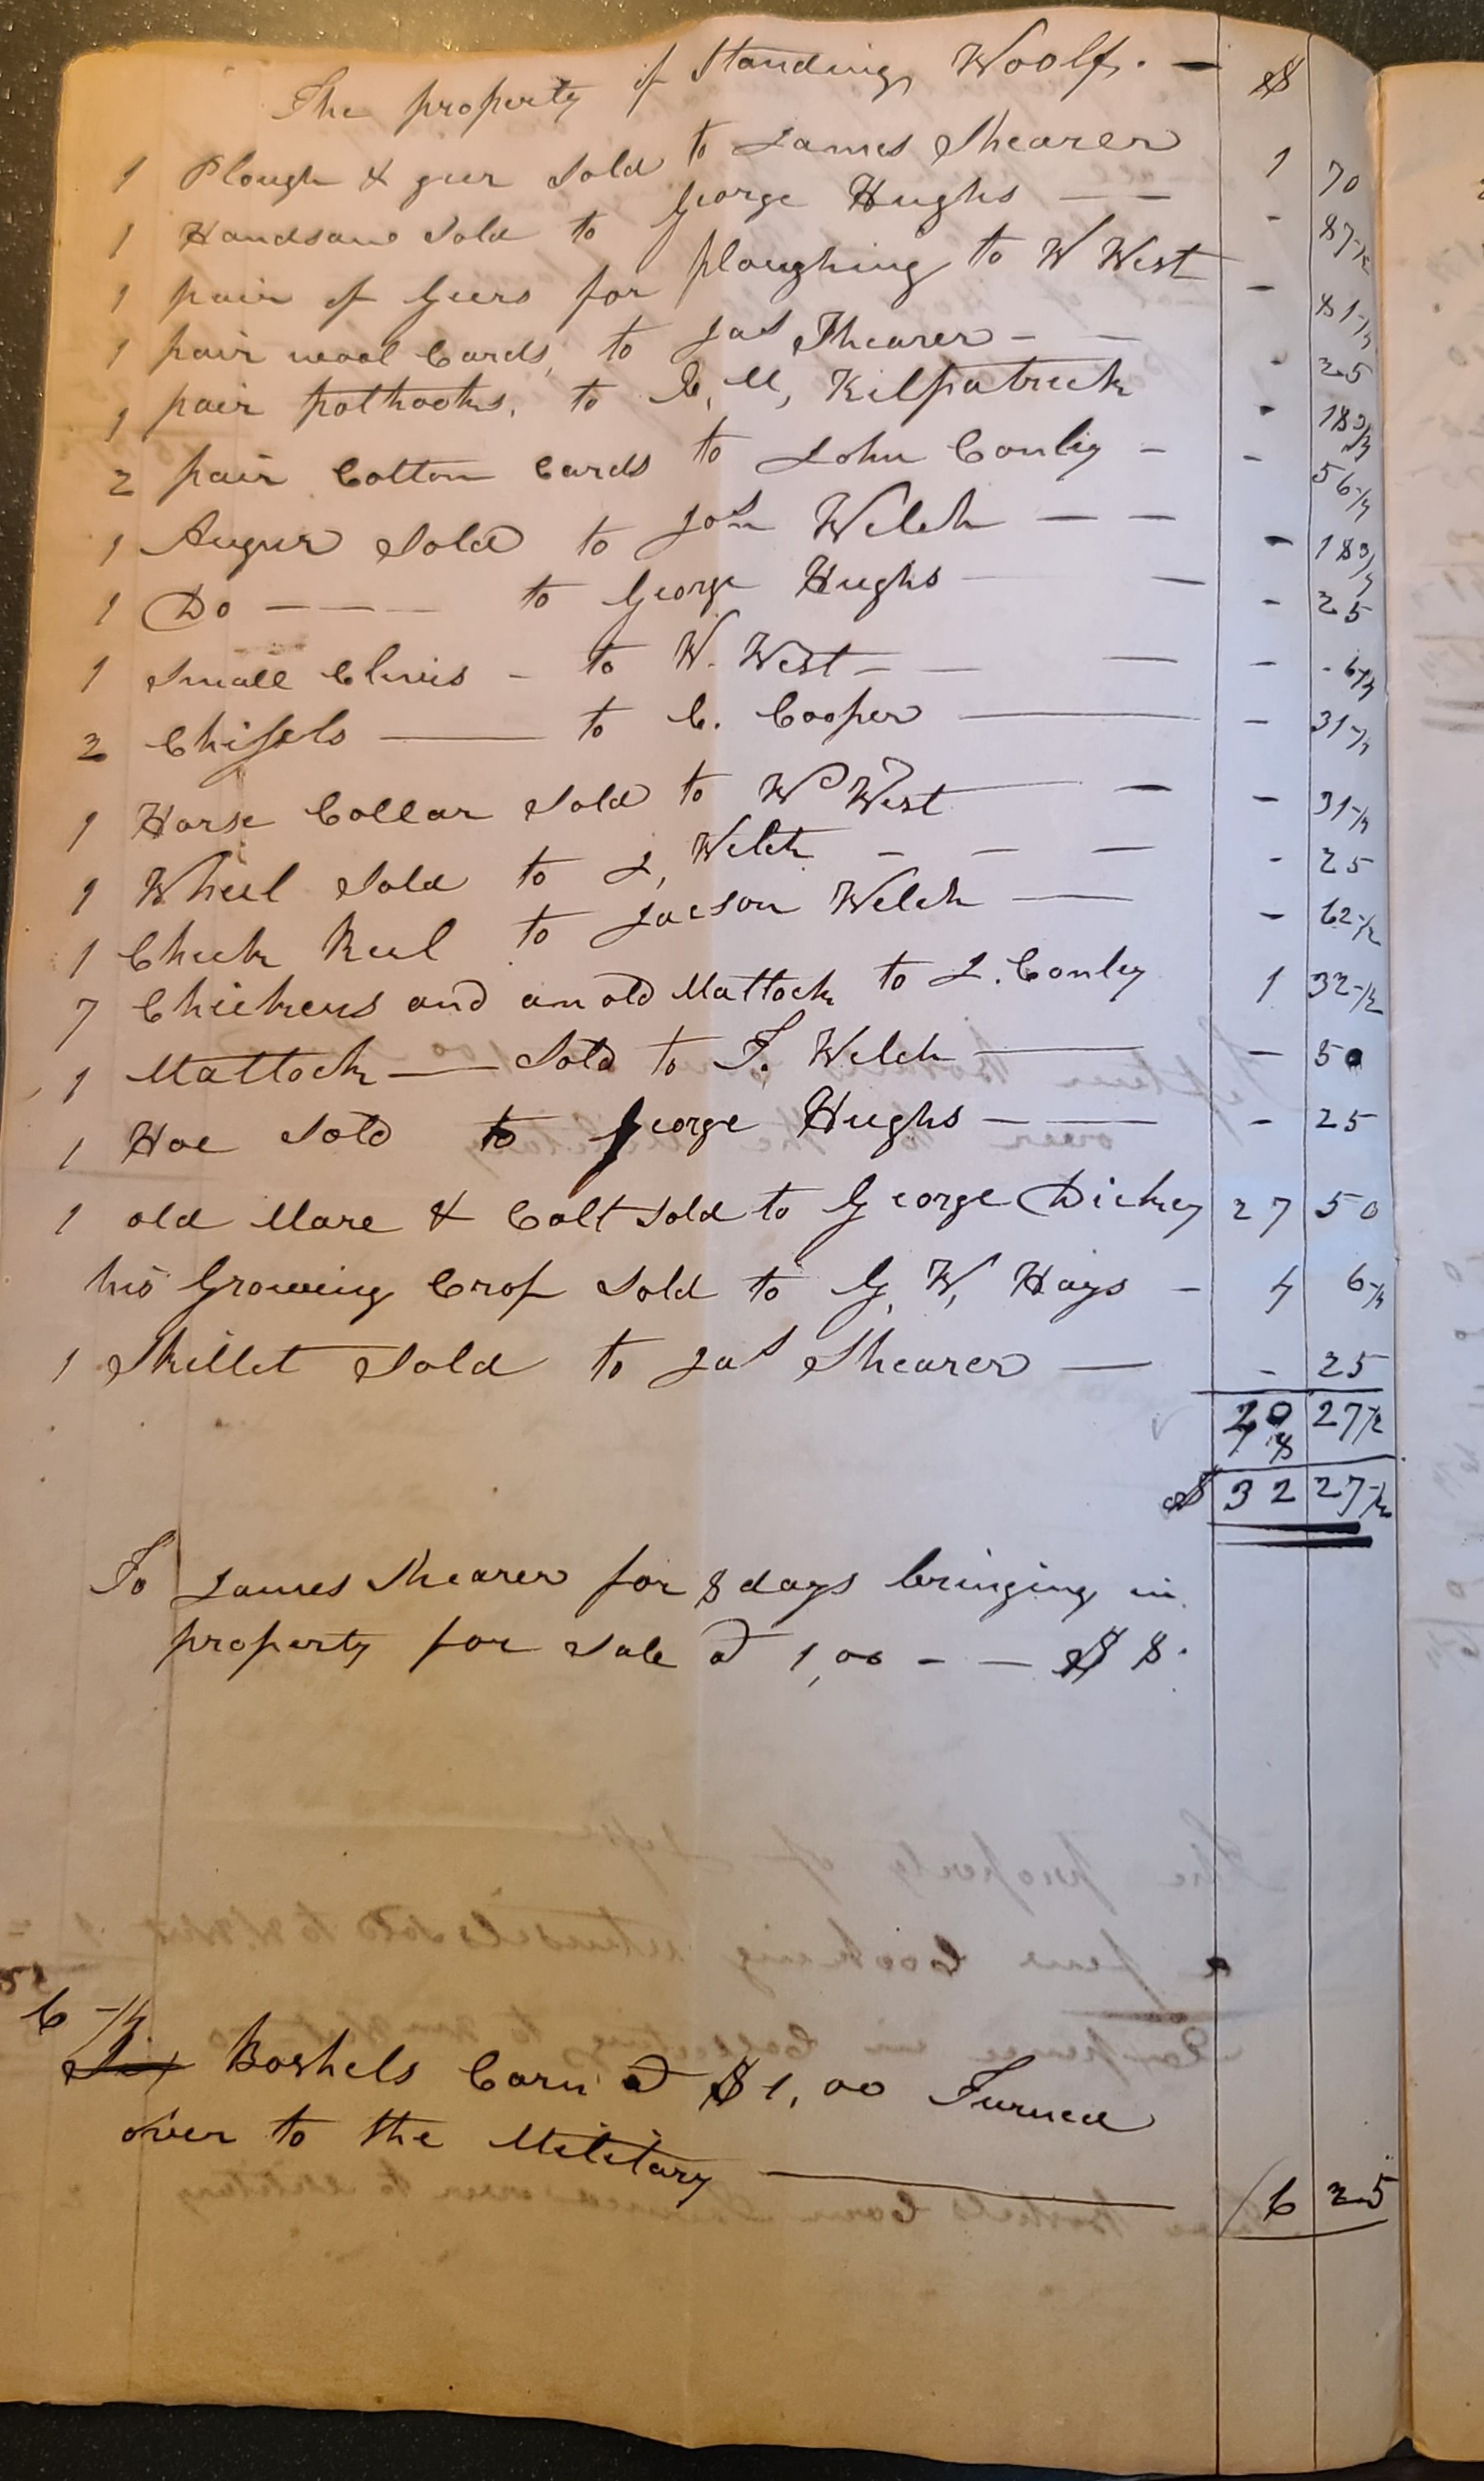 The property of Standing Woolf. — $
1 Plough & geer Sold to James Shearer 1 70
1 Handsaw Sold to George Hughs — — - 87 1/2
1 pair of Geers for ploughing to W West - 81 1/4
1 pair wool Cards, to Jas Shearer - — - 25
1 pair pothooks, to C, M, Kilpatrick - 18 3/4
2 pair Cotton Cards to John Conley - - 56 1/4
1 Augur Sold to Jon Welch — — - 18 3/4
1 Do — — — to George Hughs — — - 25
1 Small Clivis - to W. West - — — - 6 1/4
2 Chissels — to C. Cooper — - 31 1/4
1 Horse Collar Sold to Wm West — — - 31 1/4
1 Wheel Sold to J, Welch - — — - 25
1 Check Reel to Jacson Welch — - 62 1/2
7 Chickens and an old Mattock to J. Conley 1 32 1/2
1 Mattock — Sold to T. Welch — - 50
1 Hoe Sold to George Hughs — — - 25
1 old Mare & Colt Sold to George Dickey 27 50
his Growing Crop Sold to G, W, Hays - 4 6 1/4
1 Skillet Sold to Jas Shearer — - 25
27 1/2
8
$ 32 27 1/2
To James Shearer for 8 days bringing in
property for Sale @ 1,00 - — $ 8.
6 1/4
Six Boshels Corn @ $1,00 Turned
over to the Military — 6 25